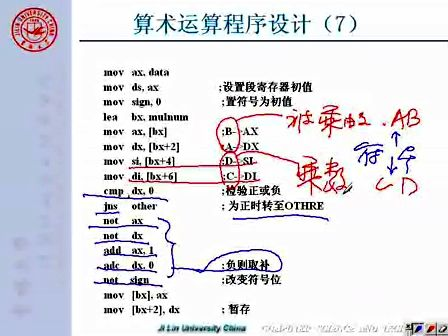 算术运算程序设计（7）
mov ax, data
mov ds, ax ;设置段寄存器初值
mov sign, 0 ;置符号为初值
lea bx, mulnum
mov ax, [bx] ;B- AX
mov dx, [bx+2] ;A- DX
mov si, [bx+4] ;D- SI
mov di, [bx+6] ;C- DI
cmp dx, 0 ;检验正或负
jns other ;为正时转至OTHRE
not ax
not dx
add ax, 1
adc dx, 0 ;负则取补
not sign ;改变符号位
mov [bx], ax
mov [bx+2], dx ;暂存
被乘数 AB
符号
乘数 CD
Ji Lin University China